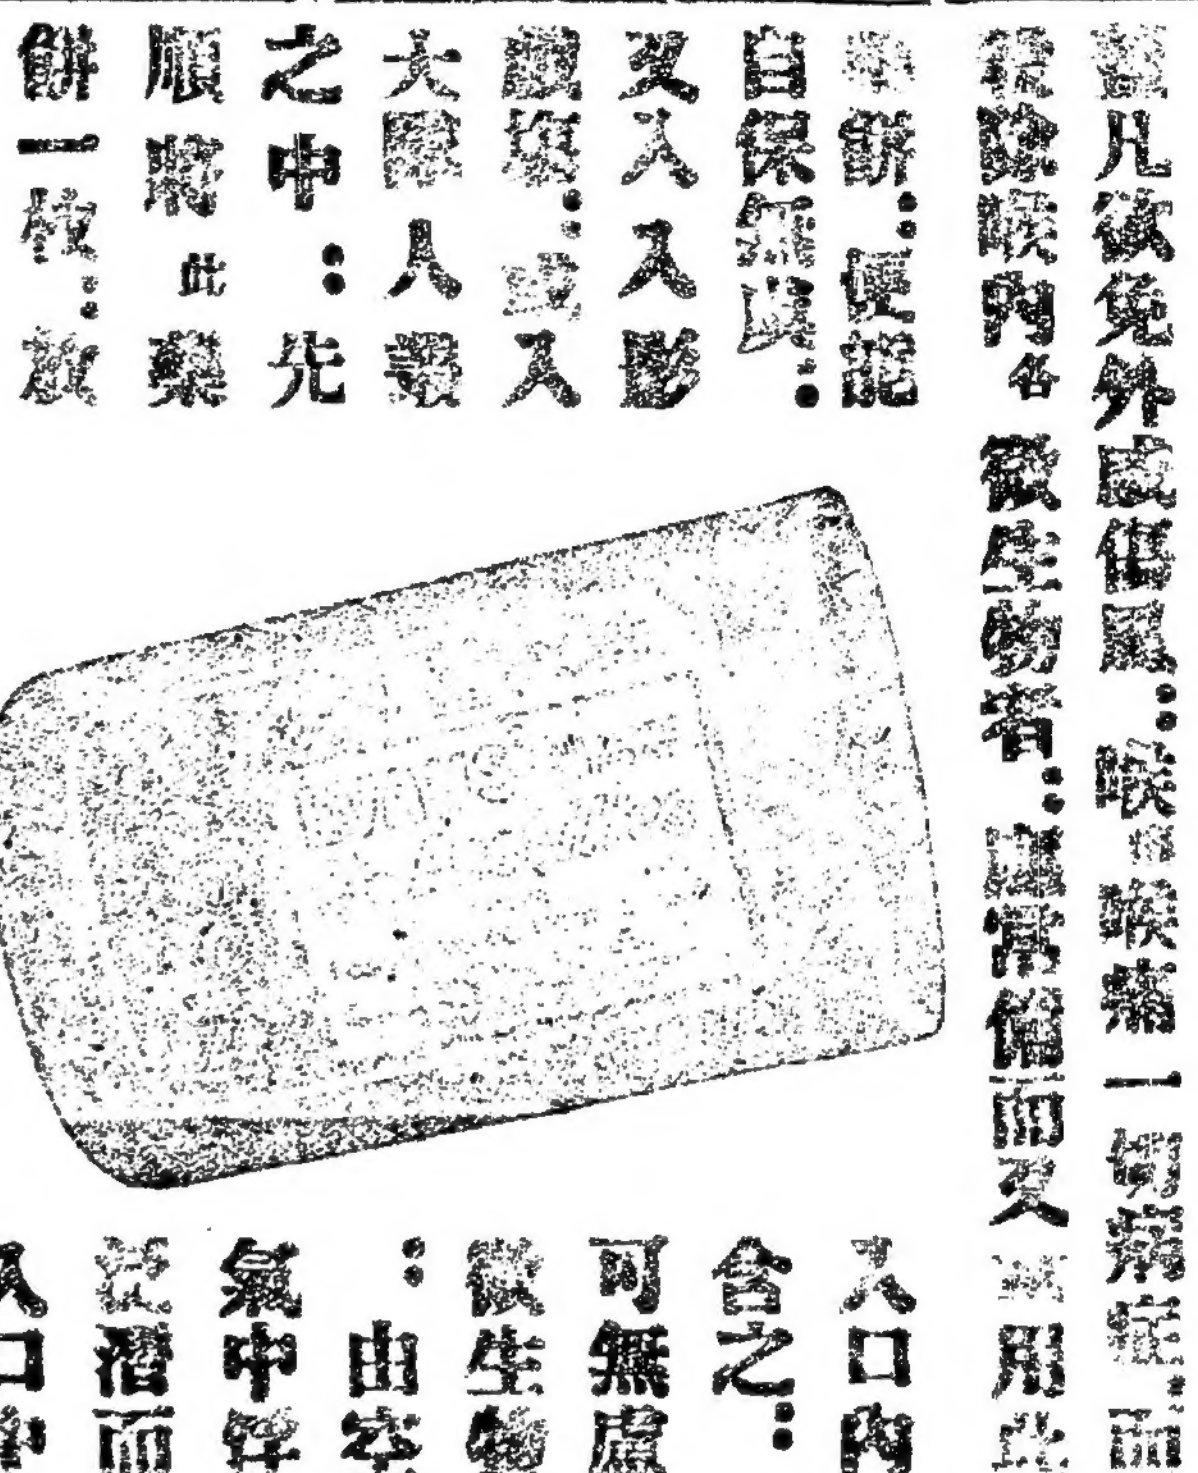 凡欲免外感傷風：咳嗽一切病症：而
除喉內各微生物者：當常備而又常用此
等餅：便能
自保無虞：
又入入影
戲院：或入
大隊人叢
之中：先
順將此藥
餅一枚：放
入口內
含之：
可無慮
微生物
：由空
氣中浮
潛而
入口中